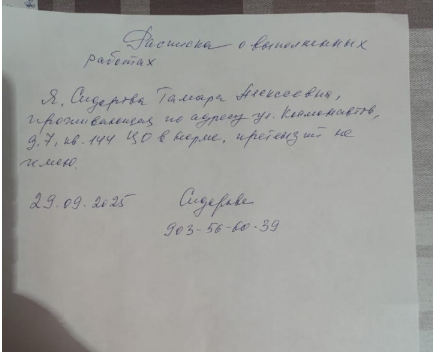 Расписка о выполненных
работах
Я, Сидорова Тамара Алексеевна,
проживающая по адресу ул. Космонавтов,
д. 7, кв. 144 ЦО в норме, претензий не
имею.
29.09.2025 Сидорова
903-56-60-39